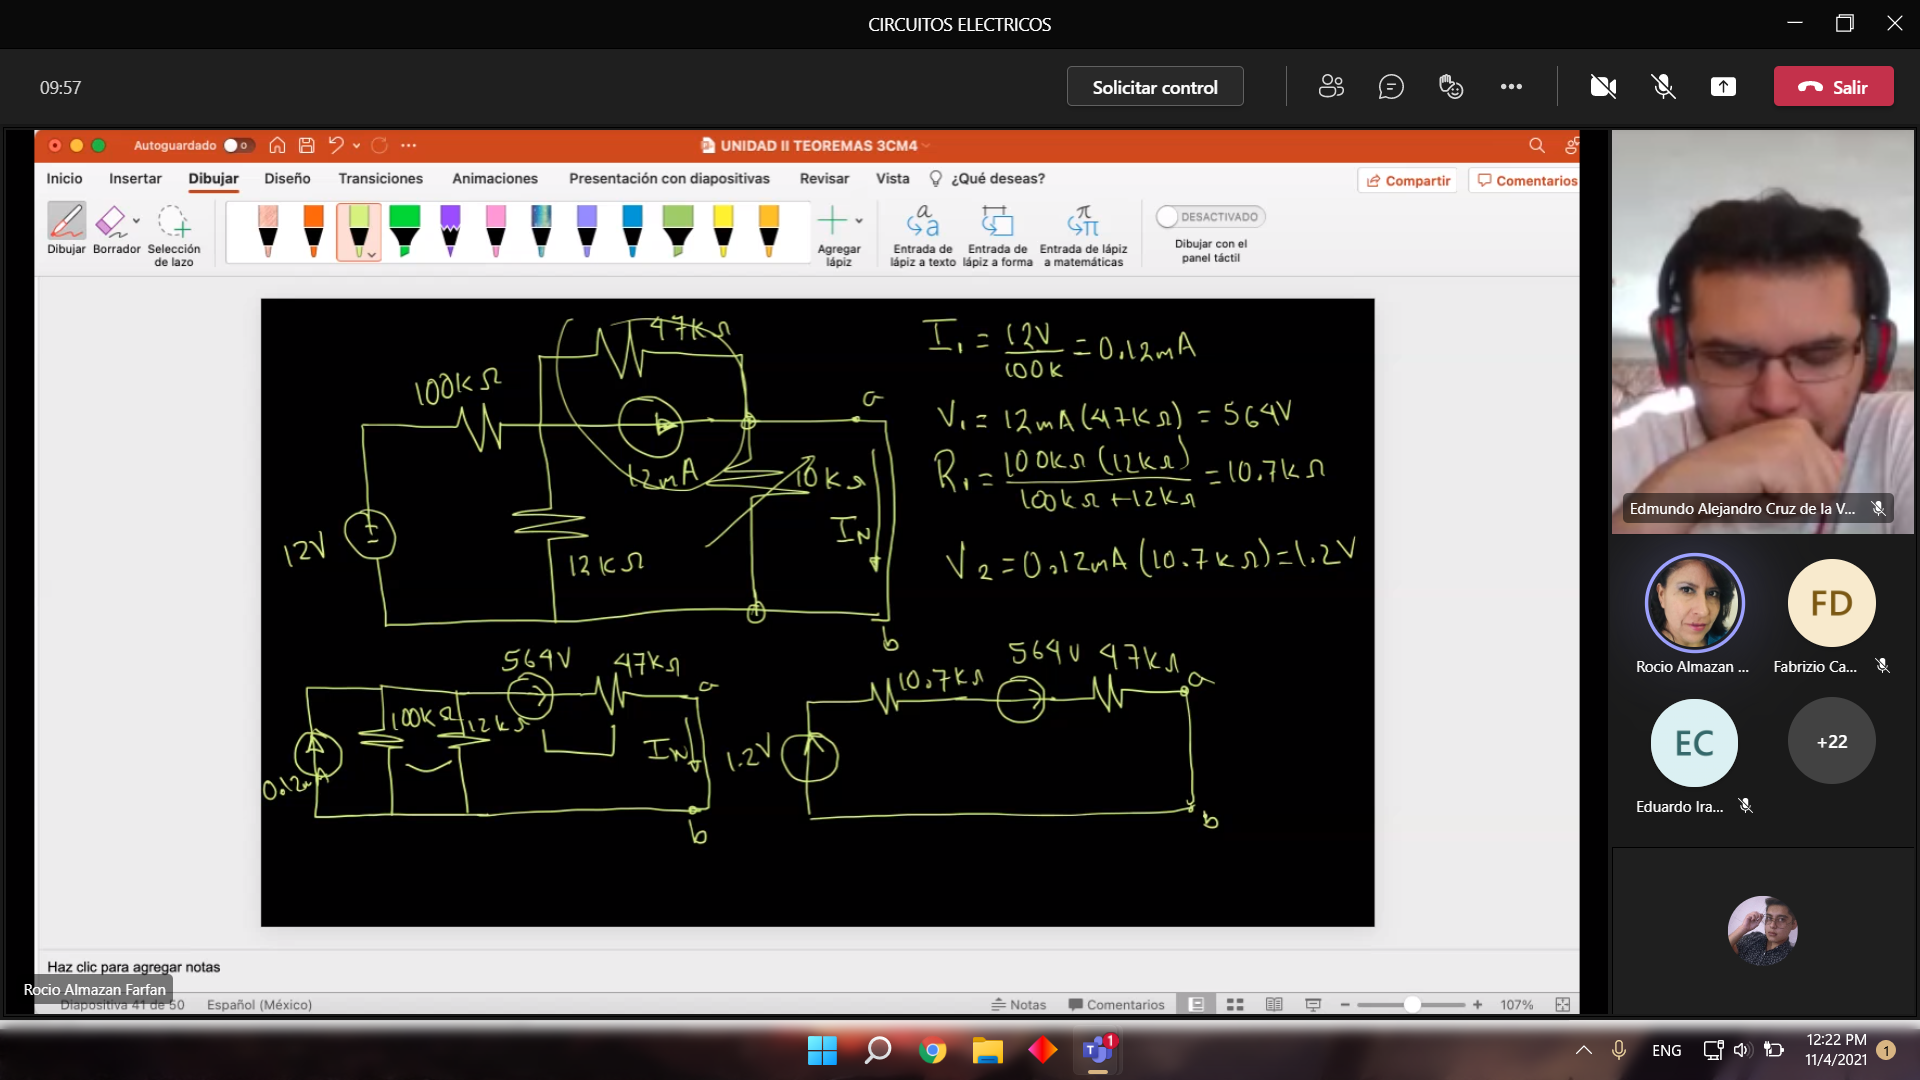 CIRCUITOS ELECTRICOS
09:57
Solicitar control
Salir
Autoguardado
UNIDAD II TEOREMAS 3CM4
Inicio Insertar Dibujar Diseño Transiciones Animaciones Presentación con diapositivas Revisar Vista ¿Qué deseas?
Compartir
Comentarios
Dibujar
Borrador
Selección
de lazo
Agregar
lápiz
Entrada de
lápiz a texto
Entrada de
lápiz a forma
Entrada de lápiz
a matemáticas
DESACTIVADO
Dibujar con el
panel táctil
47KΩ
100KΩ
a
12mA
10KΩ
IN
12V
12KΩ
b
I1 = 12V/100K = 0.12mA
V1 = 12mA(47KΩ) = 564V
R1 = 100KΩ(12KΩ)/100KΩ+12KΩ = 10.7KΩ
V2 = 0.12mA(10.7KΩ)=1.2V
564V
47KΩ
a
100KΩ
12KΩ
IN
0.12mA
b
10.7KΩ
564V
47KΩ
a
1.2V
b
Haz clic para agregar notas
Rocio Almazan Farfan
Diapositiva 41 de 50
Español (México)
Notas
Comentarios
107%
Edmundo Alejandro Cruz de la V...
Rocio Almazan ...
FD
Fabrizio Ca...
EC
Eduardo Ira...
+22
T
1
ENG
12:22 PM
11/4/2021
1